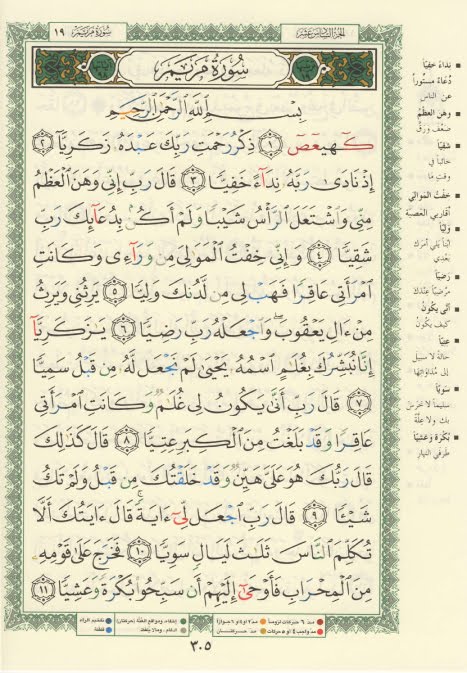 الجزء السادس عشر
سورة مريم ١٩
سُورَةُ مَرْيَمَ
بِسْمِ ٱللَّهِ ٱلرَّحْمَٰنِ ٱلرَّحِيمِ
كٓهيعٓصٓ ﴿١﴾ ذِكْرُ رَحْمَتِ رَبِّكَ عَبْدَهُۥ زَكَرِيَّآ ﴿٢﴾
إِذْ نَادَىٰ رَبَّهُۥ نِدَآءً خَفِيًّا ﴿٣﴾ قَالَ رَبِّ إِنِّى وَهَنَ ٱلْعَظْمُ
مِنِّى وَٱشْتَعَلَ ٱلرَّأْسُ شَيْبًا وَلَمْ أَكُنۢ بِدُعَآئِكَ رَبِّ
شَقِيًّا ﴿٤﴾ وَإِنِّى خِفْتُ ٱلْمَوَٰلِىَ مِن وَرَآءِى وَكَانَتِ
ٱمْرَأَتِى عَاقِرًا فَهَبْ لِى مِن لَّدُنكَ وَلِيًّا ﴿٥﴾ يَرِثُنِى وَيَرِثُ
مِنْ ءَالِ يَعْقُوبَ ۖ وَٱجْعَلْهُ رَبِّ رَضِيًّا ﴿٦﴾ يَٰزَكَرِيَّآ
إِنَّا نُبَشِّرُكَ بِغُلَٰمٍ ٱسْمُهُۥ يَحْيَىٰ لَمْ نَجْعَل لَّهُۥ مِن قَبْلُ سَمِيًّا
﴿٧﴾ قَالَ رَبِّ أَنَّىٰ يَكُونُ لِى غُلَٰمٌ وَكَانَتِ ٱمْرَأَتِى
عَاقِرًا وَقَدْ بَلَغْتُ مِنَ ٱلْكِبَرِ عِتِيًّا ﴿٨﴾ قَالَ كَذَٰلِكَ
قَالَ رَبُّكَ هُوَ عَلَىَّ هَيِّنٌ وَقَدْ خَلَقْتُكَ مِن قَبْلُ وَلَمْ تَكُ
شَيْـًٔا ﴿٩﴾ قَالَ رَبِّ ٱجْعَل لِّىٓ ءَايَةً ۚ قَالَ ءَايَتُكَ أَلَّا
تُكَلِّمَ ٱلنَّاسَ ثَلَٰثَ لَيَالٍ سَوِيًّا ﴿١٠﴾ فَخَرَجَ عَلَىٰ قَوْمِهِۦ
مِنَ ٱلْمِحْرَابِ فَأَوْحَىٰٓ إِلَيْهِمْ أَن سَبِّحُوا۟ بُكْرَةً وَعَشِيًّا ﴿١١﴾
■ نداءً خفيًّا
دُعاءً مستوراً
عن الناس
■ وهَن العظمُ
ضعُف ورقّ
■ شقيّاً
خائباً في
وقتٍ ما
■ خفتُ الموالي
أقاربي العَصَبة
■ وَليّاً
ابناً يلي أمرك
بعدي
■ رضيّاً
مرضيّاً عندك
■ أنّى يكونُ
كيف يكونُ
■ عتيّاً
حالةً لا سبيل
إلى مُداواتها
■ سويّاً
سليماً لا خَرَسَ
بك ولا علّة
■ بُكرةً وعَشيّاً
طرفي النهار
مدّ ٦ حركات لزوماً مدّ ٢ أو ٤ أو ٦ جوازاً إخفاء، ومواقع الغُنَّة (حركتان) تفخيم الراء
مدّ واجب ٤ أو ٥ حركات مدّ حركتان إدغام، وما لا يُلفَظ قلقلة
٣٠٥